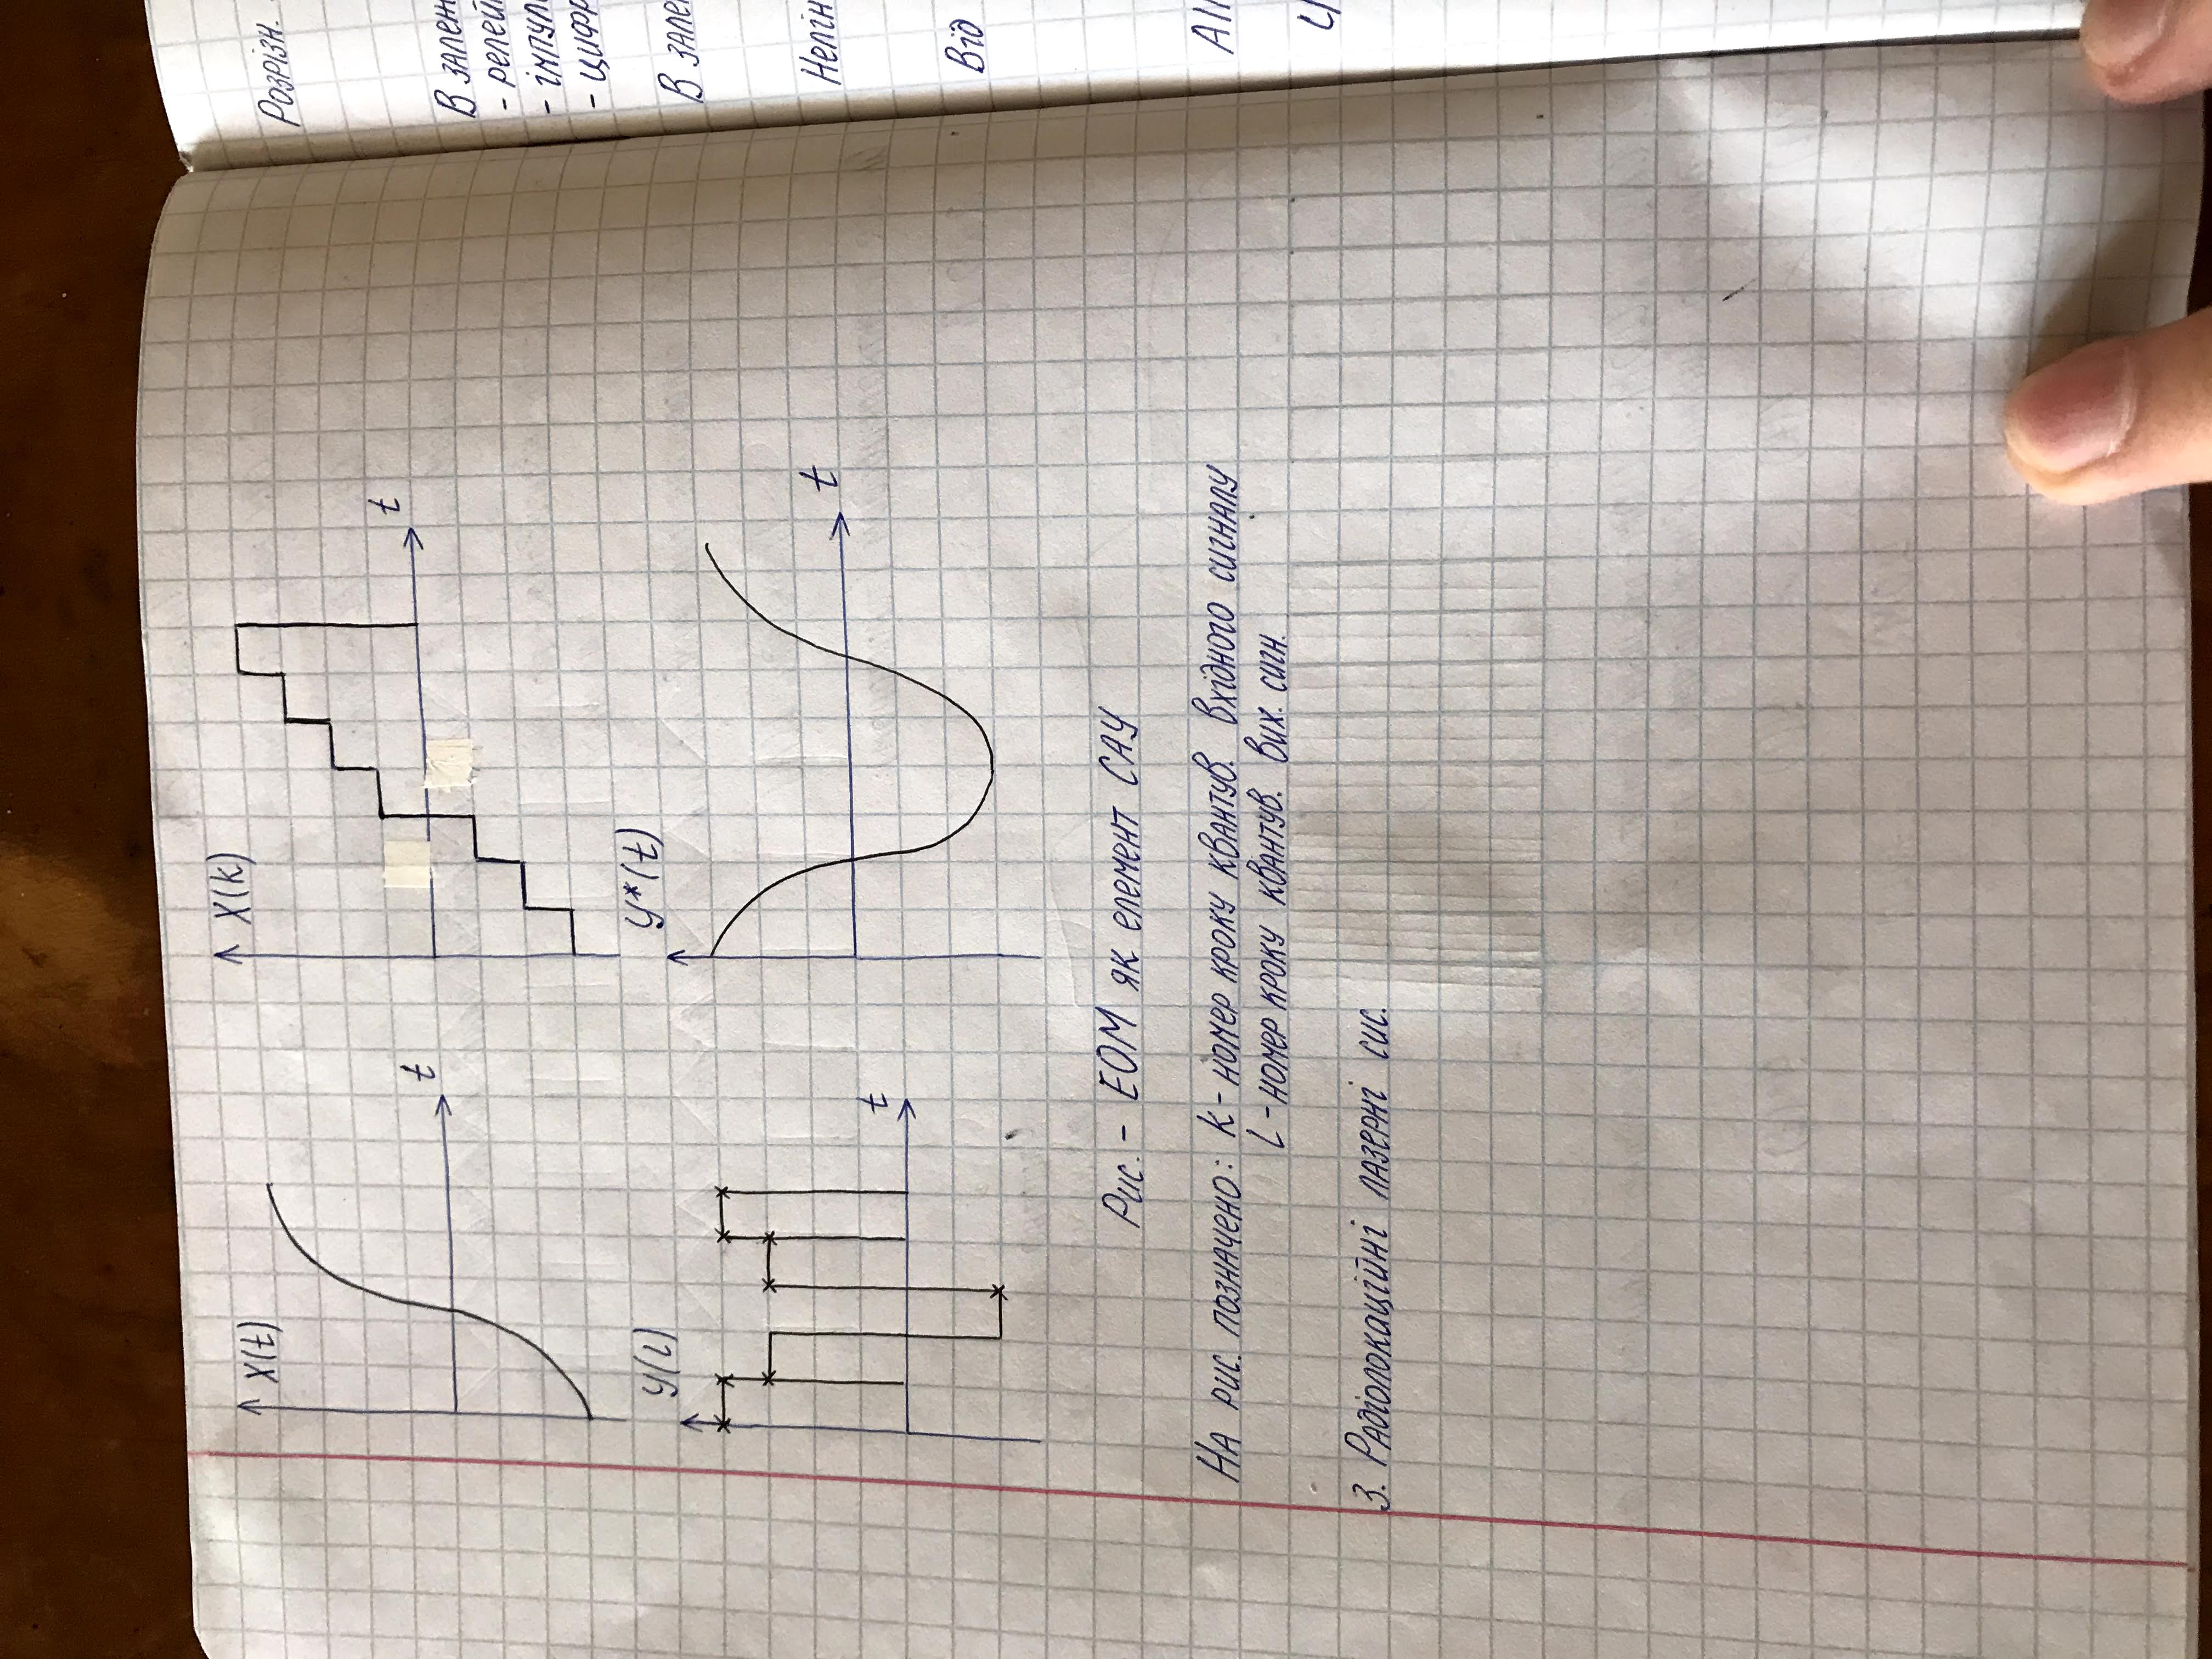 X(t)
t
X(k)
t
У(l)
t
У*(t)
t
Рис. - ЕОМ як елемент САУ
На рис. позначено: k - номер кроку квантув. вхідного сигналу
l - номер кроку квантув. вих. сигн.
3. Радіолокаційні лазерні сис.
Розрізн.
В залеж
- релей
- імпул
- цифр
В зале
Нелін
Від